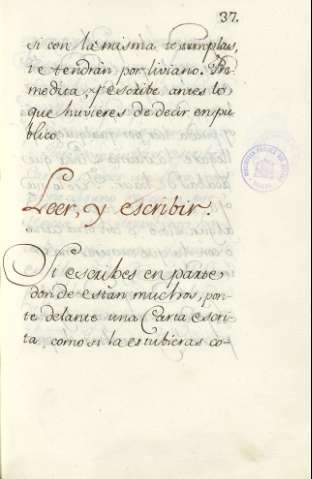 37.
si con la misma
te tendrán por liviano. Pre
medita, y escribe antes lo
que huvieres de decir en pu
blico.
Leer, y escribir.
Si escribes en parte
donde están muchos, pon-
te delante una Carta escri-
ta, como si la estubieras co-